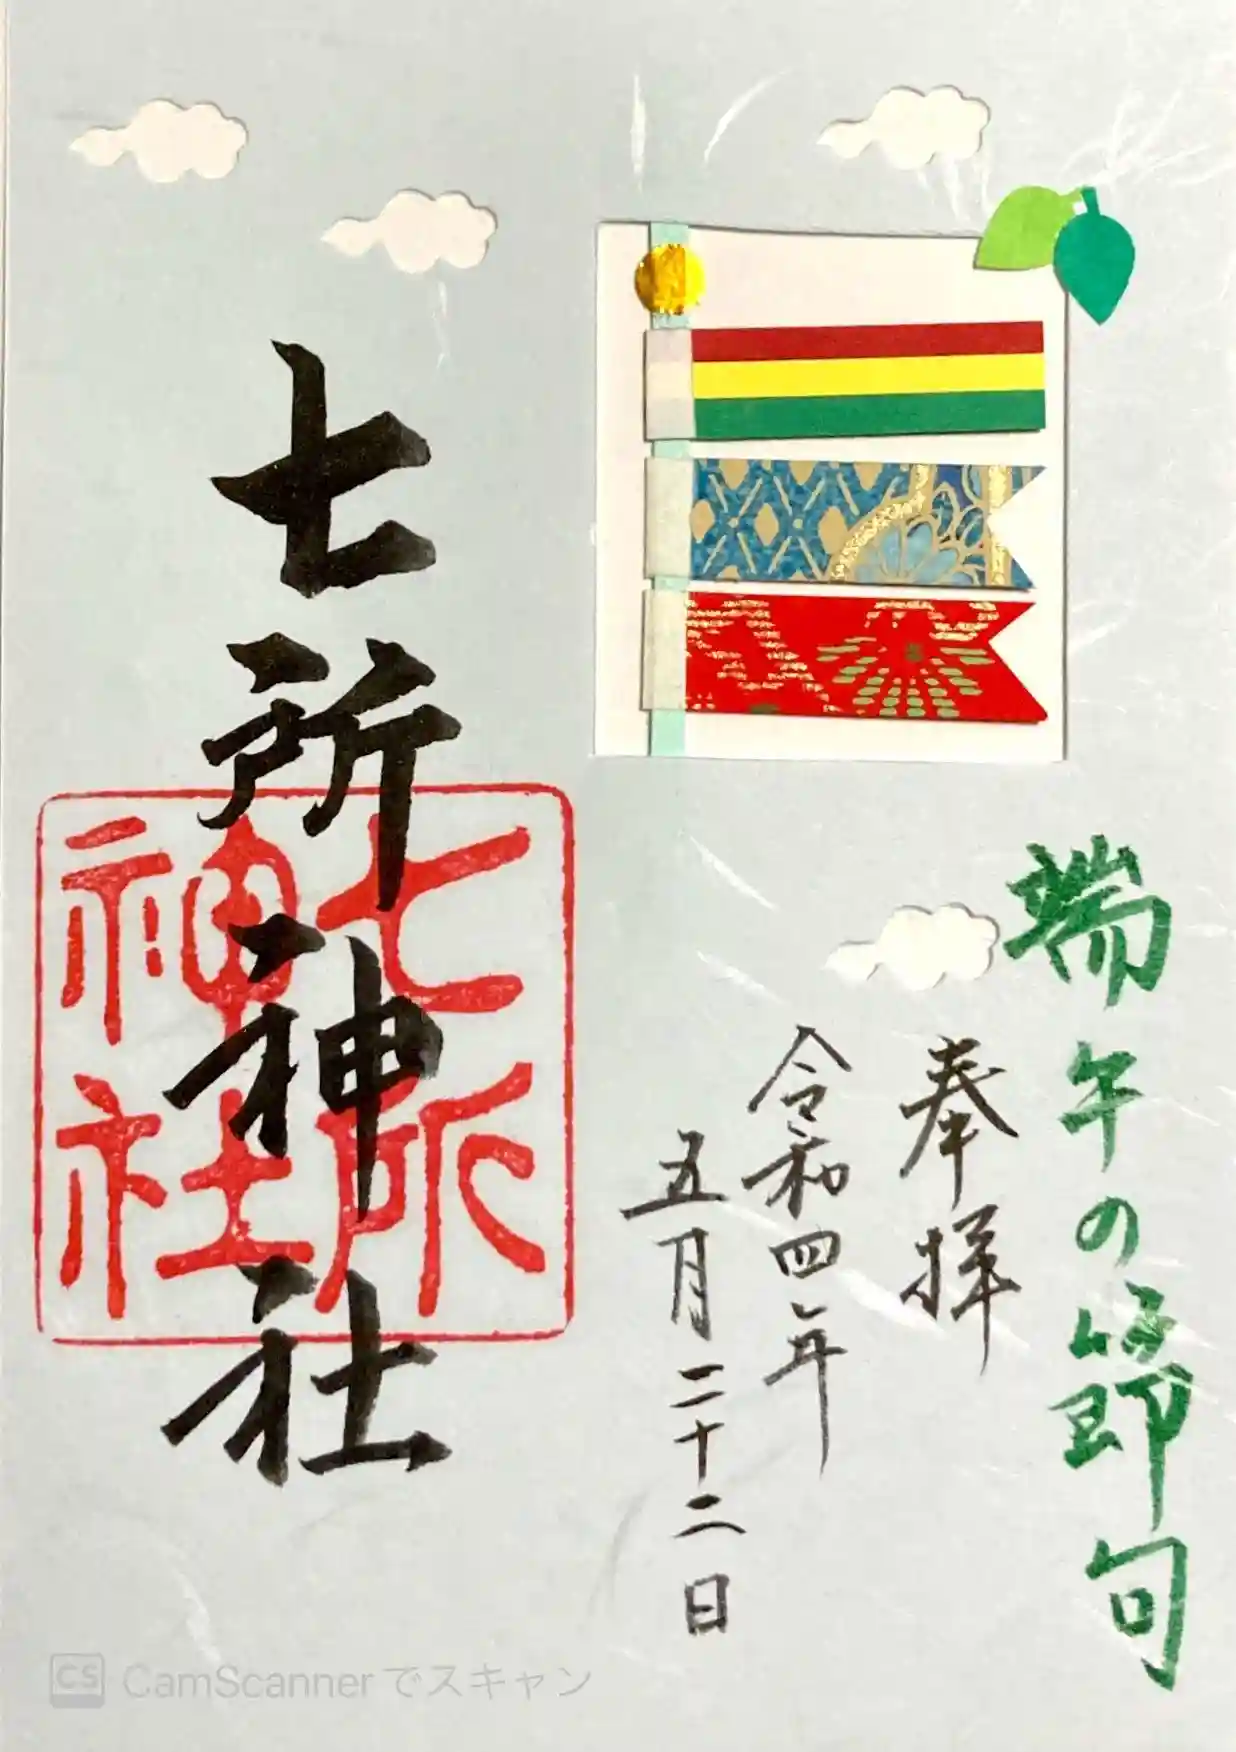 端午の節句
奉拝
令和四年
五月二十二日
七所神社
七所
神社
CS CamScannerでスキャン